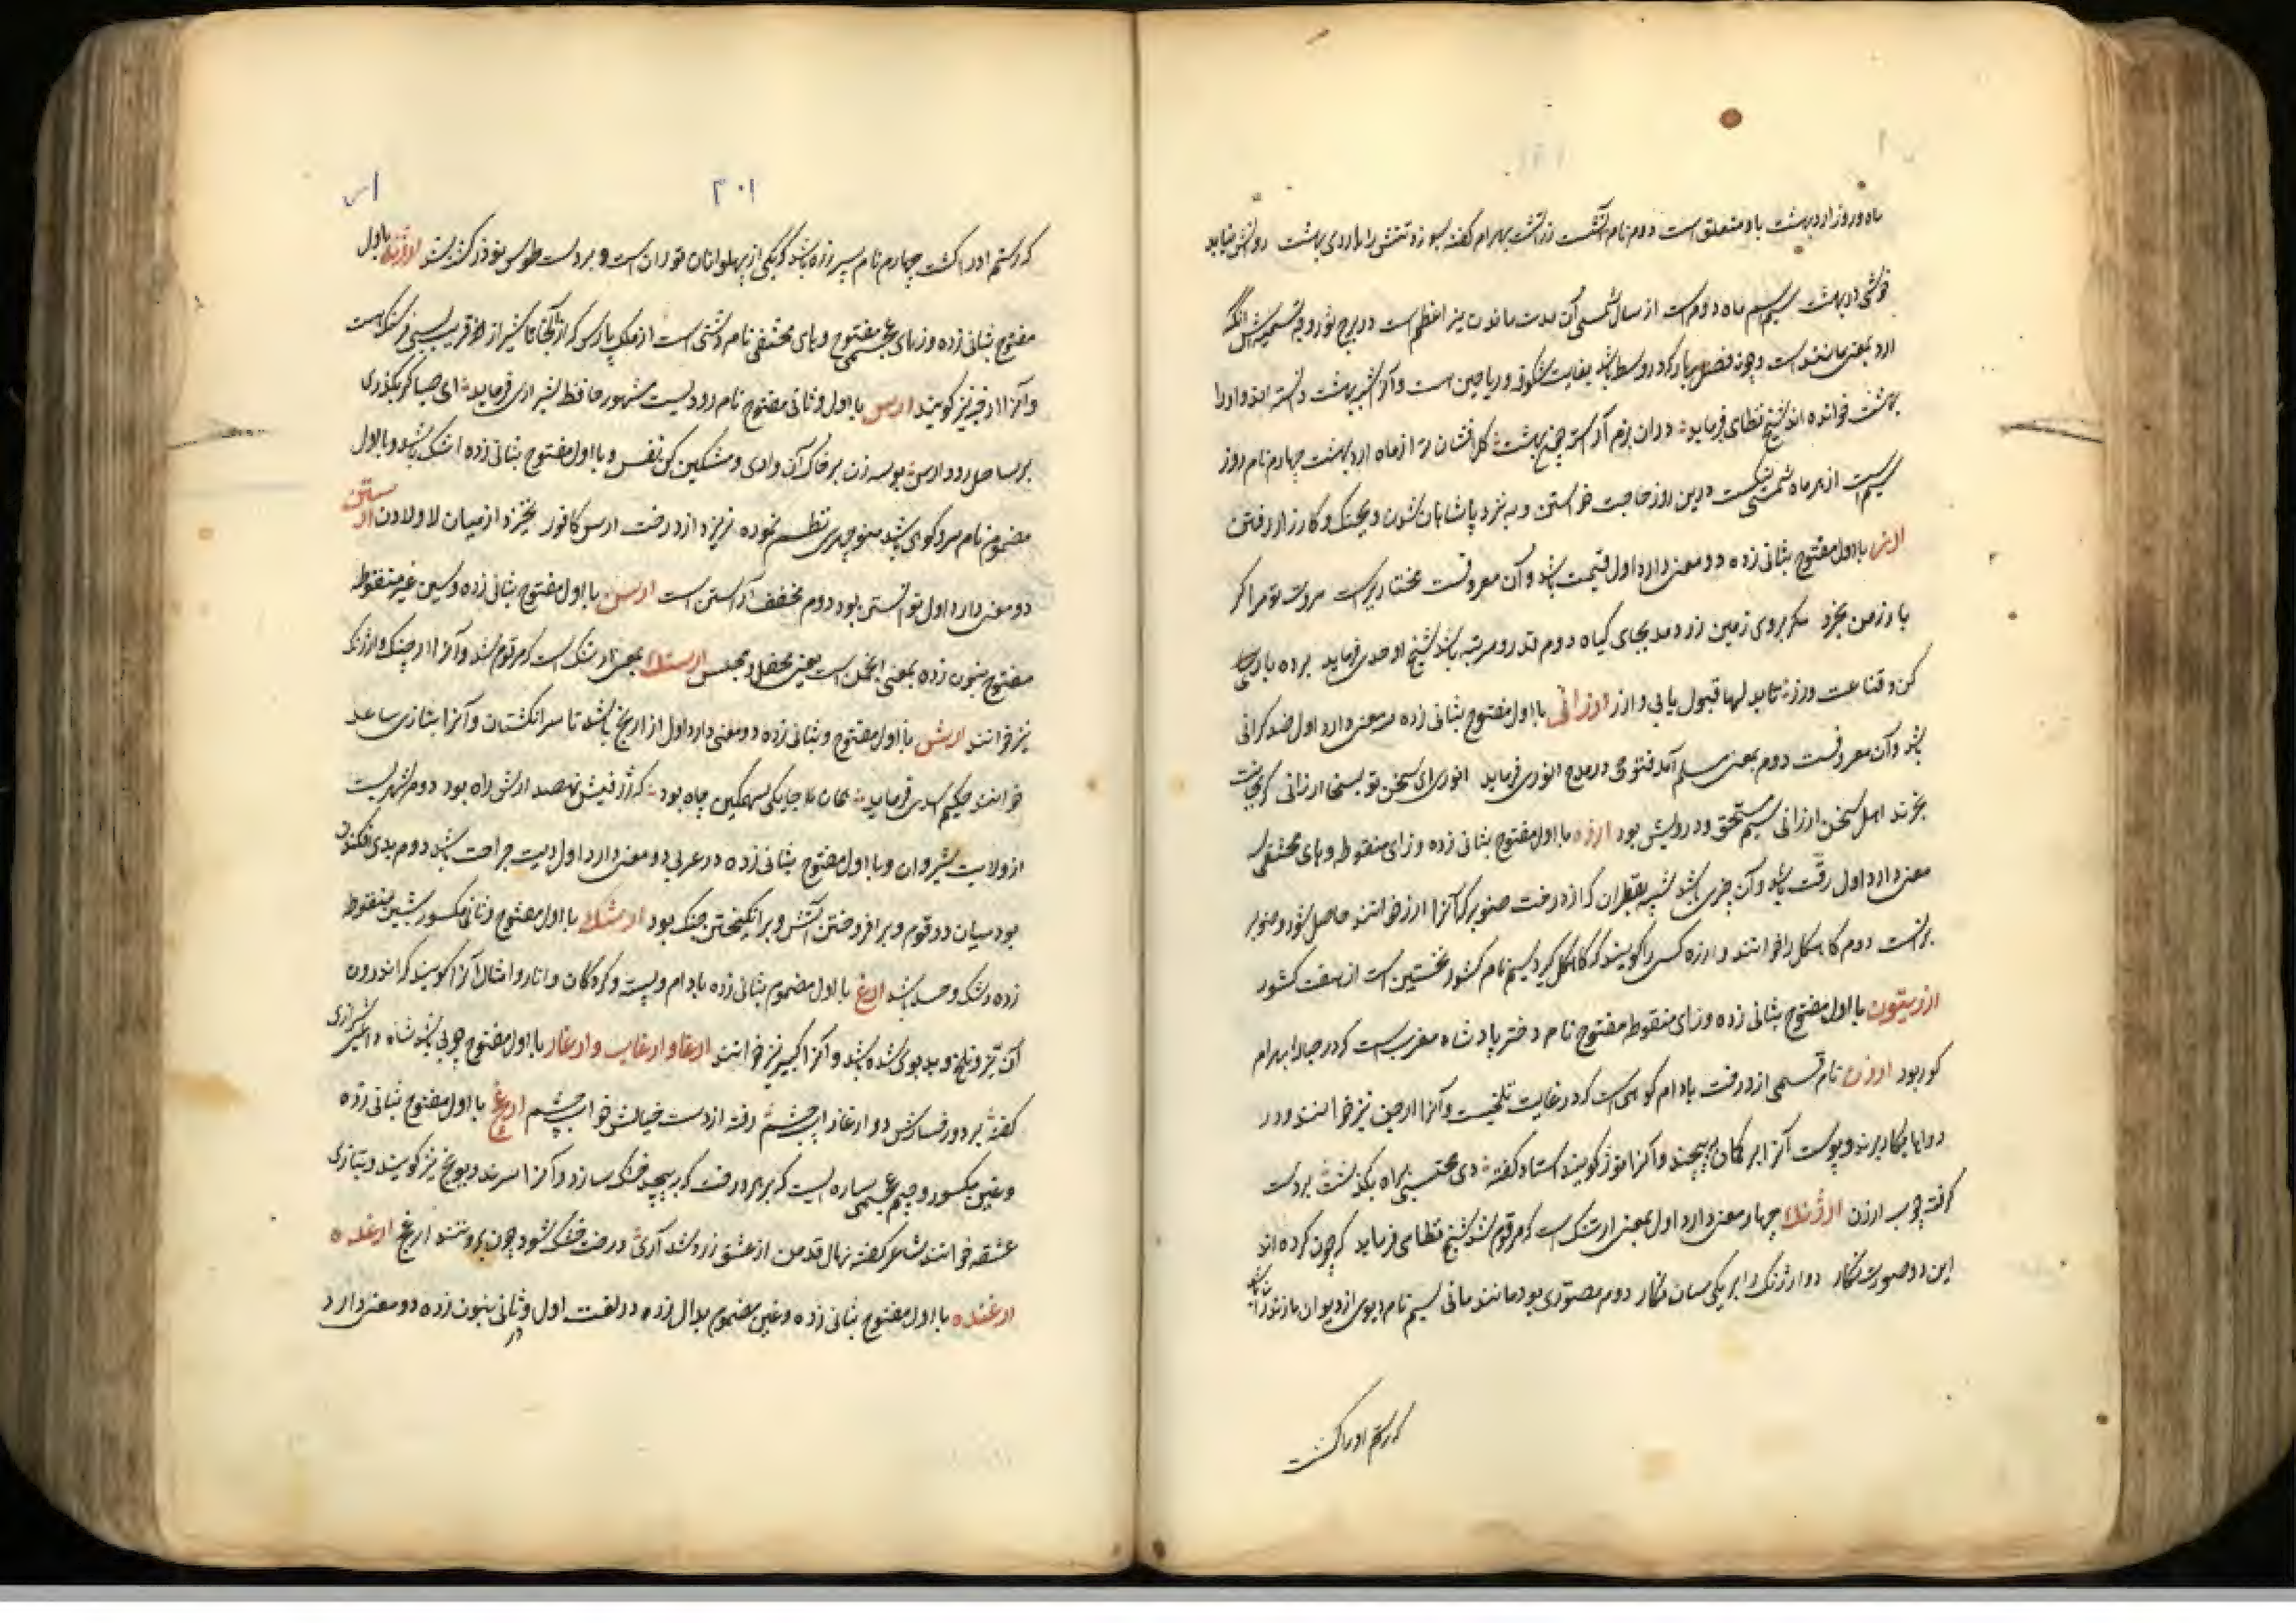 ماه و روز اردیبهشت باو متعلق است دوم نام آتش است زراتشت بهرام گفته بسوزد تنش را باردی بهشت روانش نیابد
خوشی در بهشت سیم ماه دوم است از سال شمسی و آن مدت ماندن نیر اعظم است در برج ثور و وجه تسمیه‌اش آنکه
ارد بمعنی مانند است و چون فصل بهار که در وسط باشد بغایت شکوفه و ریاحین است و آنرا شبیه بهشت دانسته اند و او را
بهشت خوانده اند شیخ نظامی فرماید دران بزم آراسته چون بهشت گل افشان تر از ماه اردیبهشت چهارم نام روز
سیم است از هر ماه شمسی نیکست درین روز حاجت خواستن و به نزد پادشاهان شدن و بجنگ و کارزار رفتن
ارز با اول مفتوح بثانی زده دو معنی دارد اول قیمت باشد و آن معروفست مختاریراست مروت تو مرا گر
بارز من بخرد مگر بروی زمین زر دمد بجای گیاه دوم قدر و مرتبه باشد شیخ اوحدی فرماید برده باری
کن و قناعت ورز تا بدلها قبول یابی و ارز ارزانی با اول مفتوح بثانی زده سه معنی دارد اول ضد گرانی
باشد و آن معروفست دوم بمعنی مسلم آمد فتوحی در مدح انوری فرماید انوری ای سخن تو بسخا ارزانی گر بجانت
بخرند اهل سخن ارزانی سیم مستحق و درویش بود ارزه با اول مفتوح بثانی زده و زای منقوطه و های مختفی سه
معنی دارد اول زفت باشد و آن چیزی باشد شبیه بقطران که از درخت صنوبر که آنرا ارز خوانند حاصل شود و صنوبر
برانست دوم کاهگل را خوانند و ارزه کسی را گویند که کاهگل کند سیم نام کشور نخستین است از هفت کشور
ارزیتون با اول مفتوح بثانی زده و زای منقوطه مفتوح نام دختر پادشاه مغرب است که در حباله بهرام
گور بود ارژن نام قسمی از درخت بادام کوهی است که در غایت تلخیست و آنرا ارجن نیز خوانند و در
دواها بکار برند و پوست آنرا بر کمان پیچند و آنرا توز گویند استاد گفته دی محتسبی براه بگذشت بر دست
گرفته چوب ارژن ارژنک چهار معنی دارد اول بمعنی ارتنک است که مرقوم شد شیخ نظامی فرماید که چون کرده اند
این دو صورت نگار دو ارژنگ را بر یکی سان نگار دوم مصوری بود مانند مانی سیم نام دیوی از دیوان مازندران باشد
که رستم او را کشت
۲۰۱
که رستم او را کشت چهارم نام پسر زره باشد که یکی از پهلوانان توران است و بر دست طوس نوذر کشته شد ارژنه با اول
مفتوح بثانی زده و زای عجمی مفتوح و های مختفی نام دشتی است از ملک پارس که از آنجا تا شیراز قریب بیست فرسنگ است
و آنرا ارجنه نیز گویند ارس با اول و ثانی مفتوح نام رودیست مشهور حافظ شیرازی فرماید ای صبا گر بگذری
بر ساحل رود ارس بوسه زن بر خاک آن وادی و مشکین کن نفس و با اول مفتوح بثانی زده اشک باشد و با اول
مضموم نام سرو کوهی باشد منوچهری نظم نموده نریزد از درخت ارس کافور نخیزد از میان لاد لادن ارستن
دو معنی دارد اول توانستن بود دوم مخفف آراستن است ارسن با اول مفتوح بثانی زده و سین غیر منقوطه
مفتوح بنون زده بمعنی انجمن است یعنی محفل و مجلس ارسنک بمعنی ارتنک است که مرقوم شد و آنرا ارچنک و ارژنک
نیز خوانند ارش با اول مفتوح و بثانی زده دو معنی دارد اول از آرنج باشد تا سر انگشتان و آنرا بتازی ساعد
خوانند حکیم اسدی فرماید همان جایگه سهمگین چاه بود که ژرفیش نهصد ارش راه بود دوم شهریست
از ولایت شروان و با اول مفتوح بثانی زده در عربی دو معنی دارد اول دیت جراحت باشد دوم بدی افکندن
بود میان دو قوم و برافروختن آتش و برانگیختن جنگ بود ارشک با اول مفتوح و ثانی مکسور بشین منقوطه
زده رشک و حسد باشد ارغ با اول مضموم بثانی زده بادام و پسته و گردکان و انار و امثال آنرا گویند که اندرون
آن تیز و تلخ و بدبوی شده باشد و آنرا کبیر نیز خوانند ارغا و ارغاب و ارغاو با اول مفتوح جوی باشد شاه داعی شیرازی
گفته بر دور رخسارش دو ارغاو آب چشم رفته از دست خیالش خواب چشم ارغج با اول مفتوح بثانی زده
و غین مکسور و جیم عجمی ساره ایست که بر هر درخت که بر پیچد خشک سازد و آنرا سرند و نوغج نیز گویند و بتازی
عشقه خوانند شاعر گفته نهال قد من از عشق زرد شد آری درخت خشک شود چون برو تند ارغج ارغده
ارغنده با اول مفتوح بثانی زده و غین مضموم بدال زده در لغت اول و ثانی بنون زده دو معنی دارد